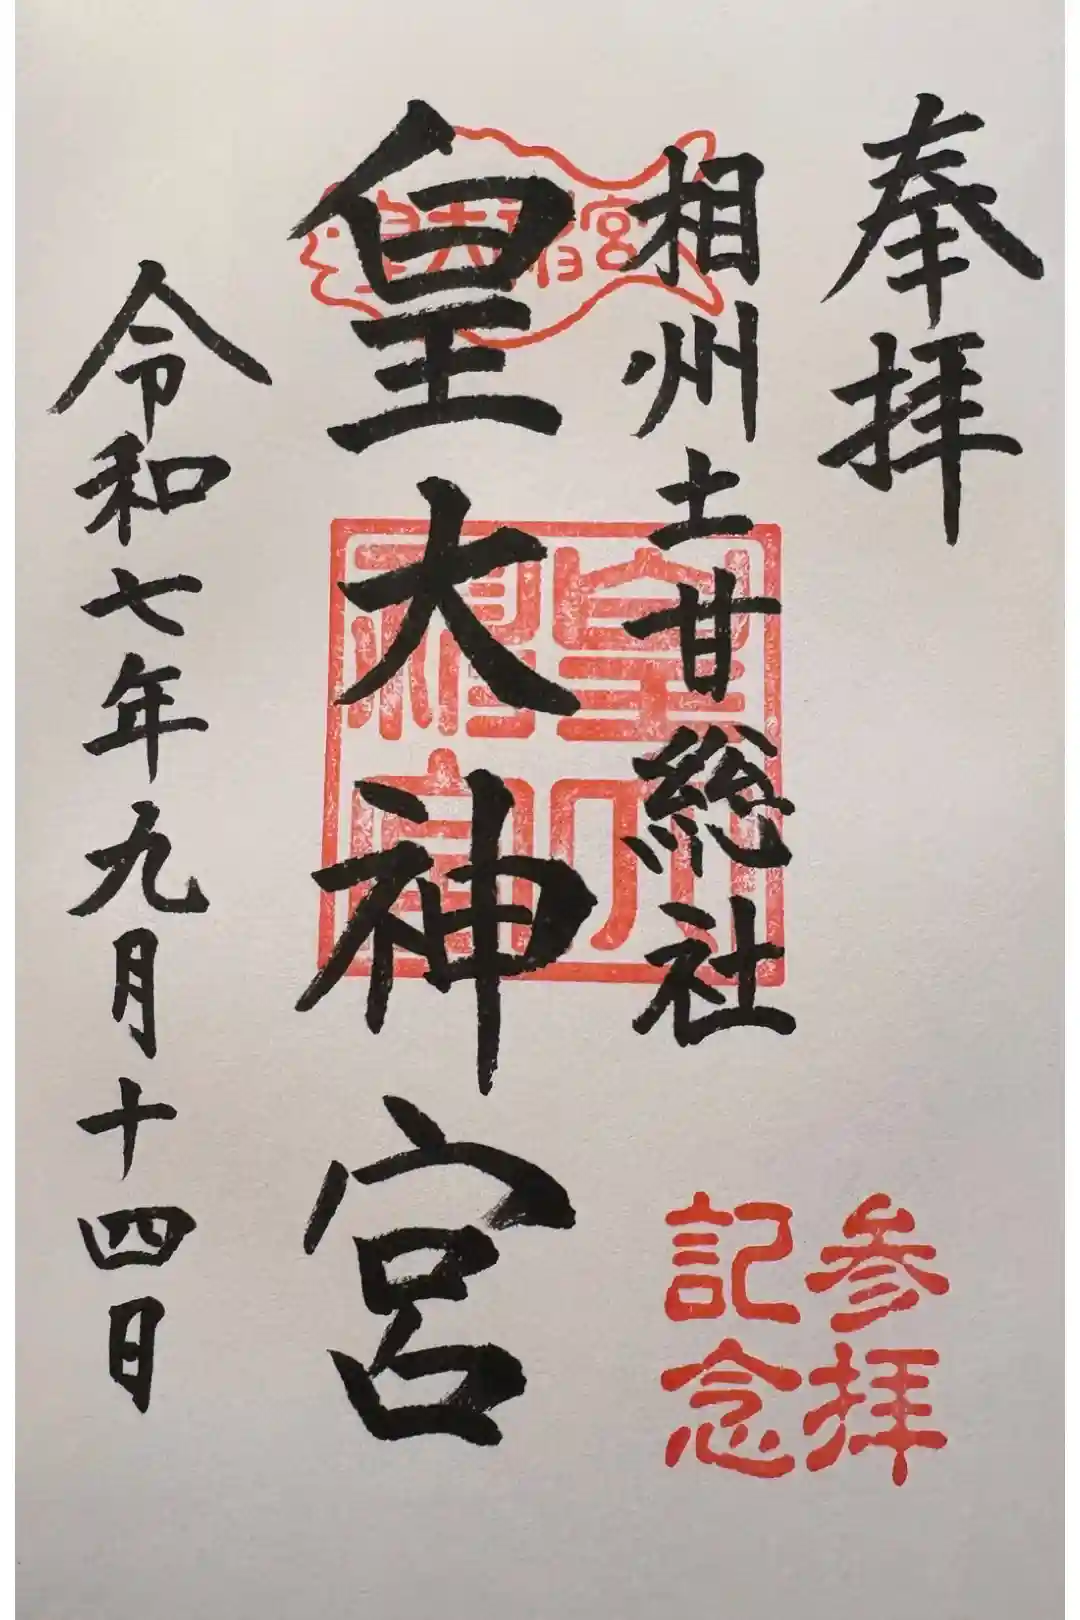 奉拝
相州土甘総社
皇大神宮
令和七年九月十四日
皇大神宮
皇大神宮
参拝
記念